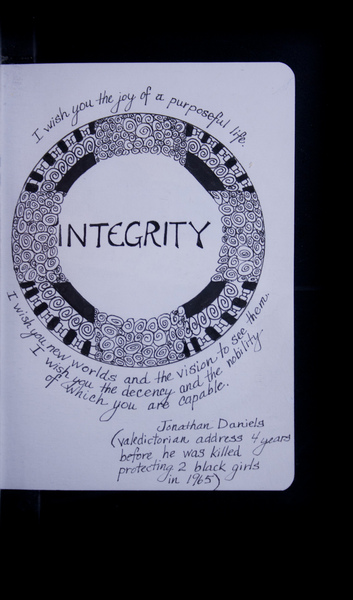 I wish you the joy of a purposeful life.
INTEGRITY
I wish you new worlds and the vision to see them.
I wish you the decency and the nobility
of which you are capable.
Jonathan Daniels
(valedictorian address 4 years
before he was killed
protecting 2 black girls
in 1965)